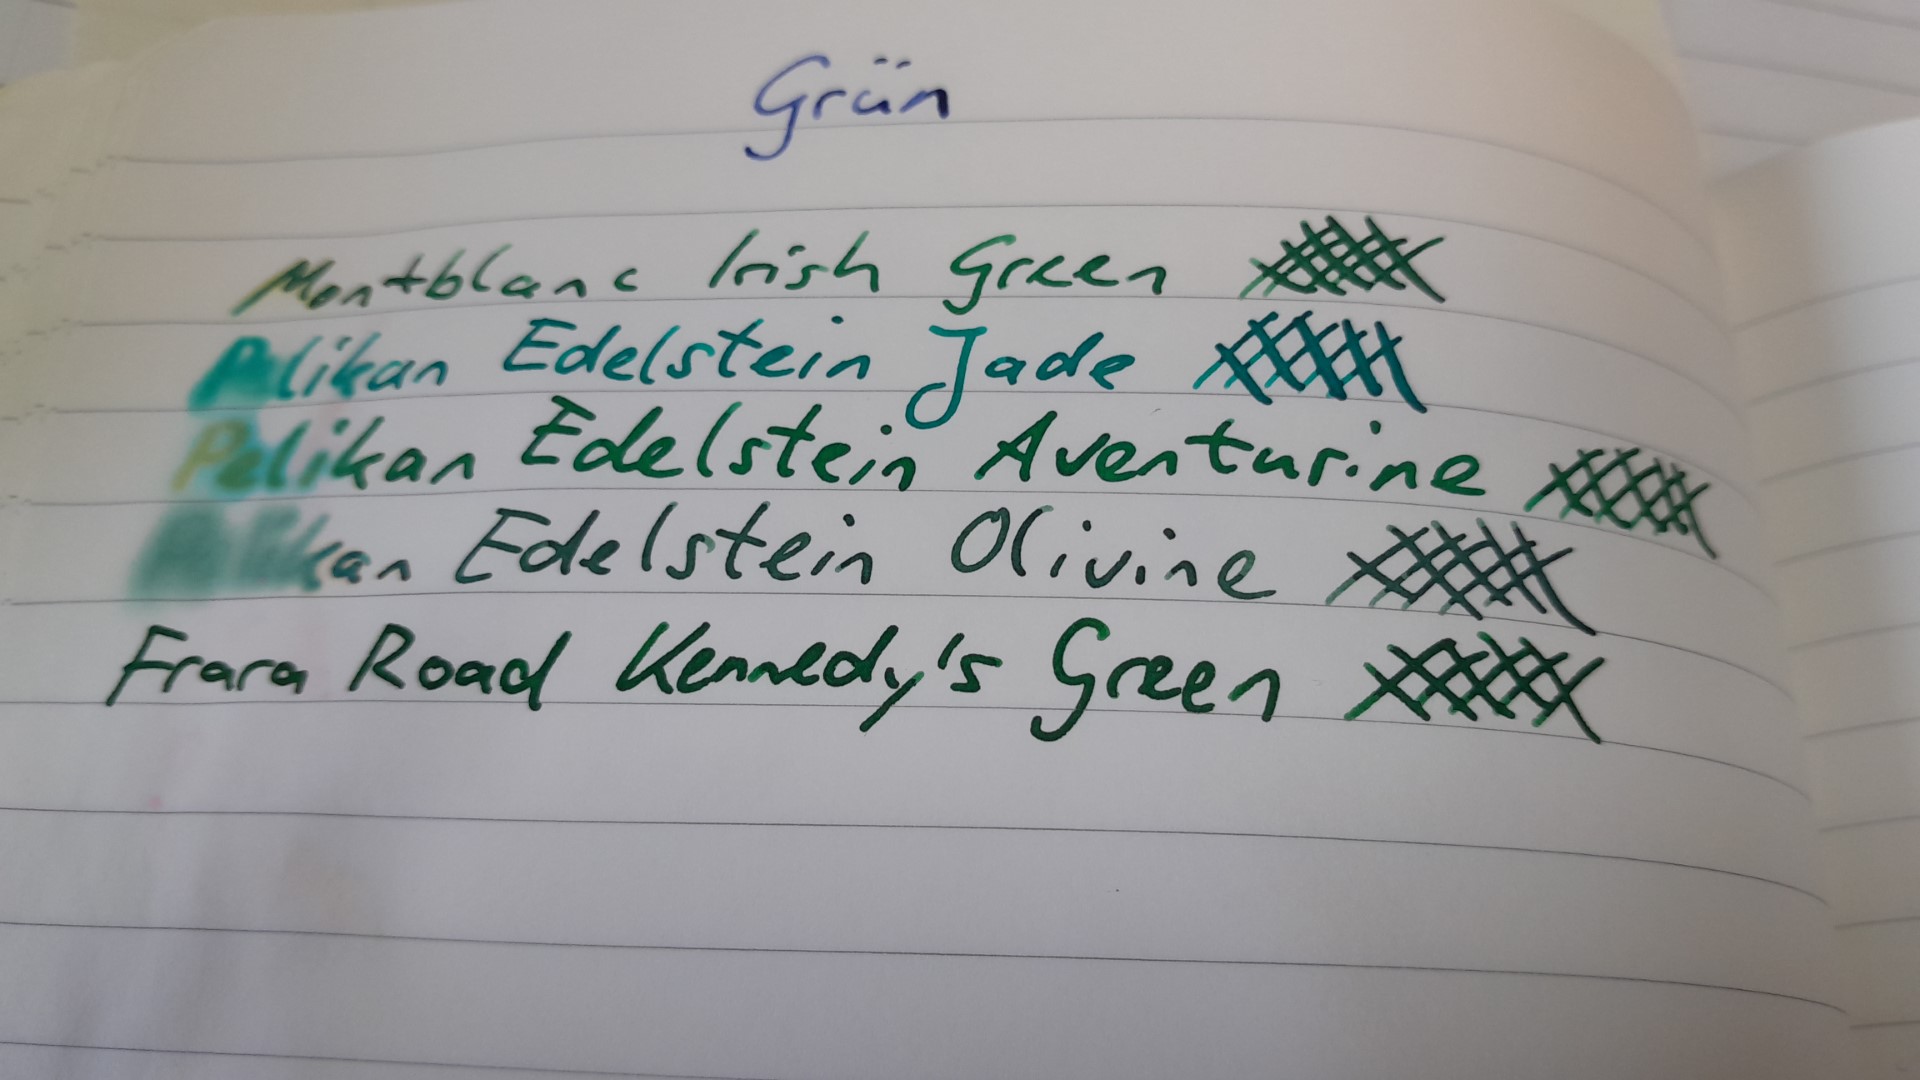 Grün
Montblanc Irish Green
Pelikan Edelstein Jade
Pelikan Edelstein Aventurine
Edelstein Olivine
Frara Road Kennedy's Green